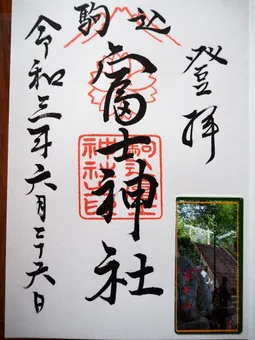 登拝
駒込
冨士神社
令和三年六月二十六日